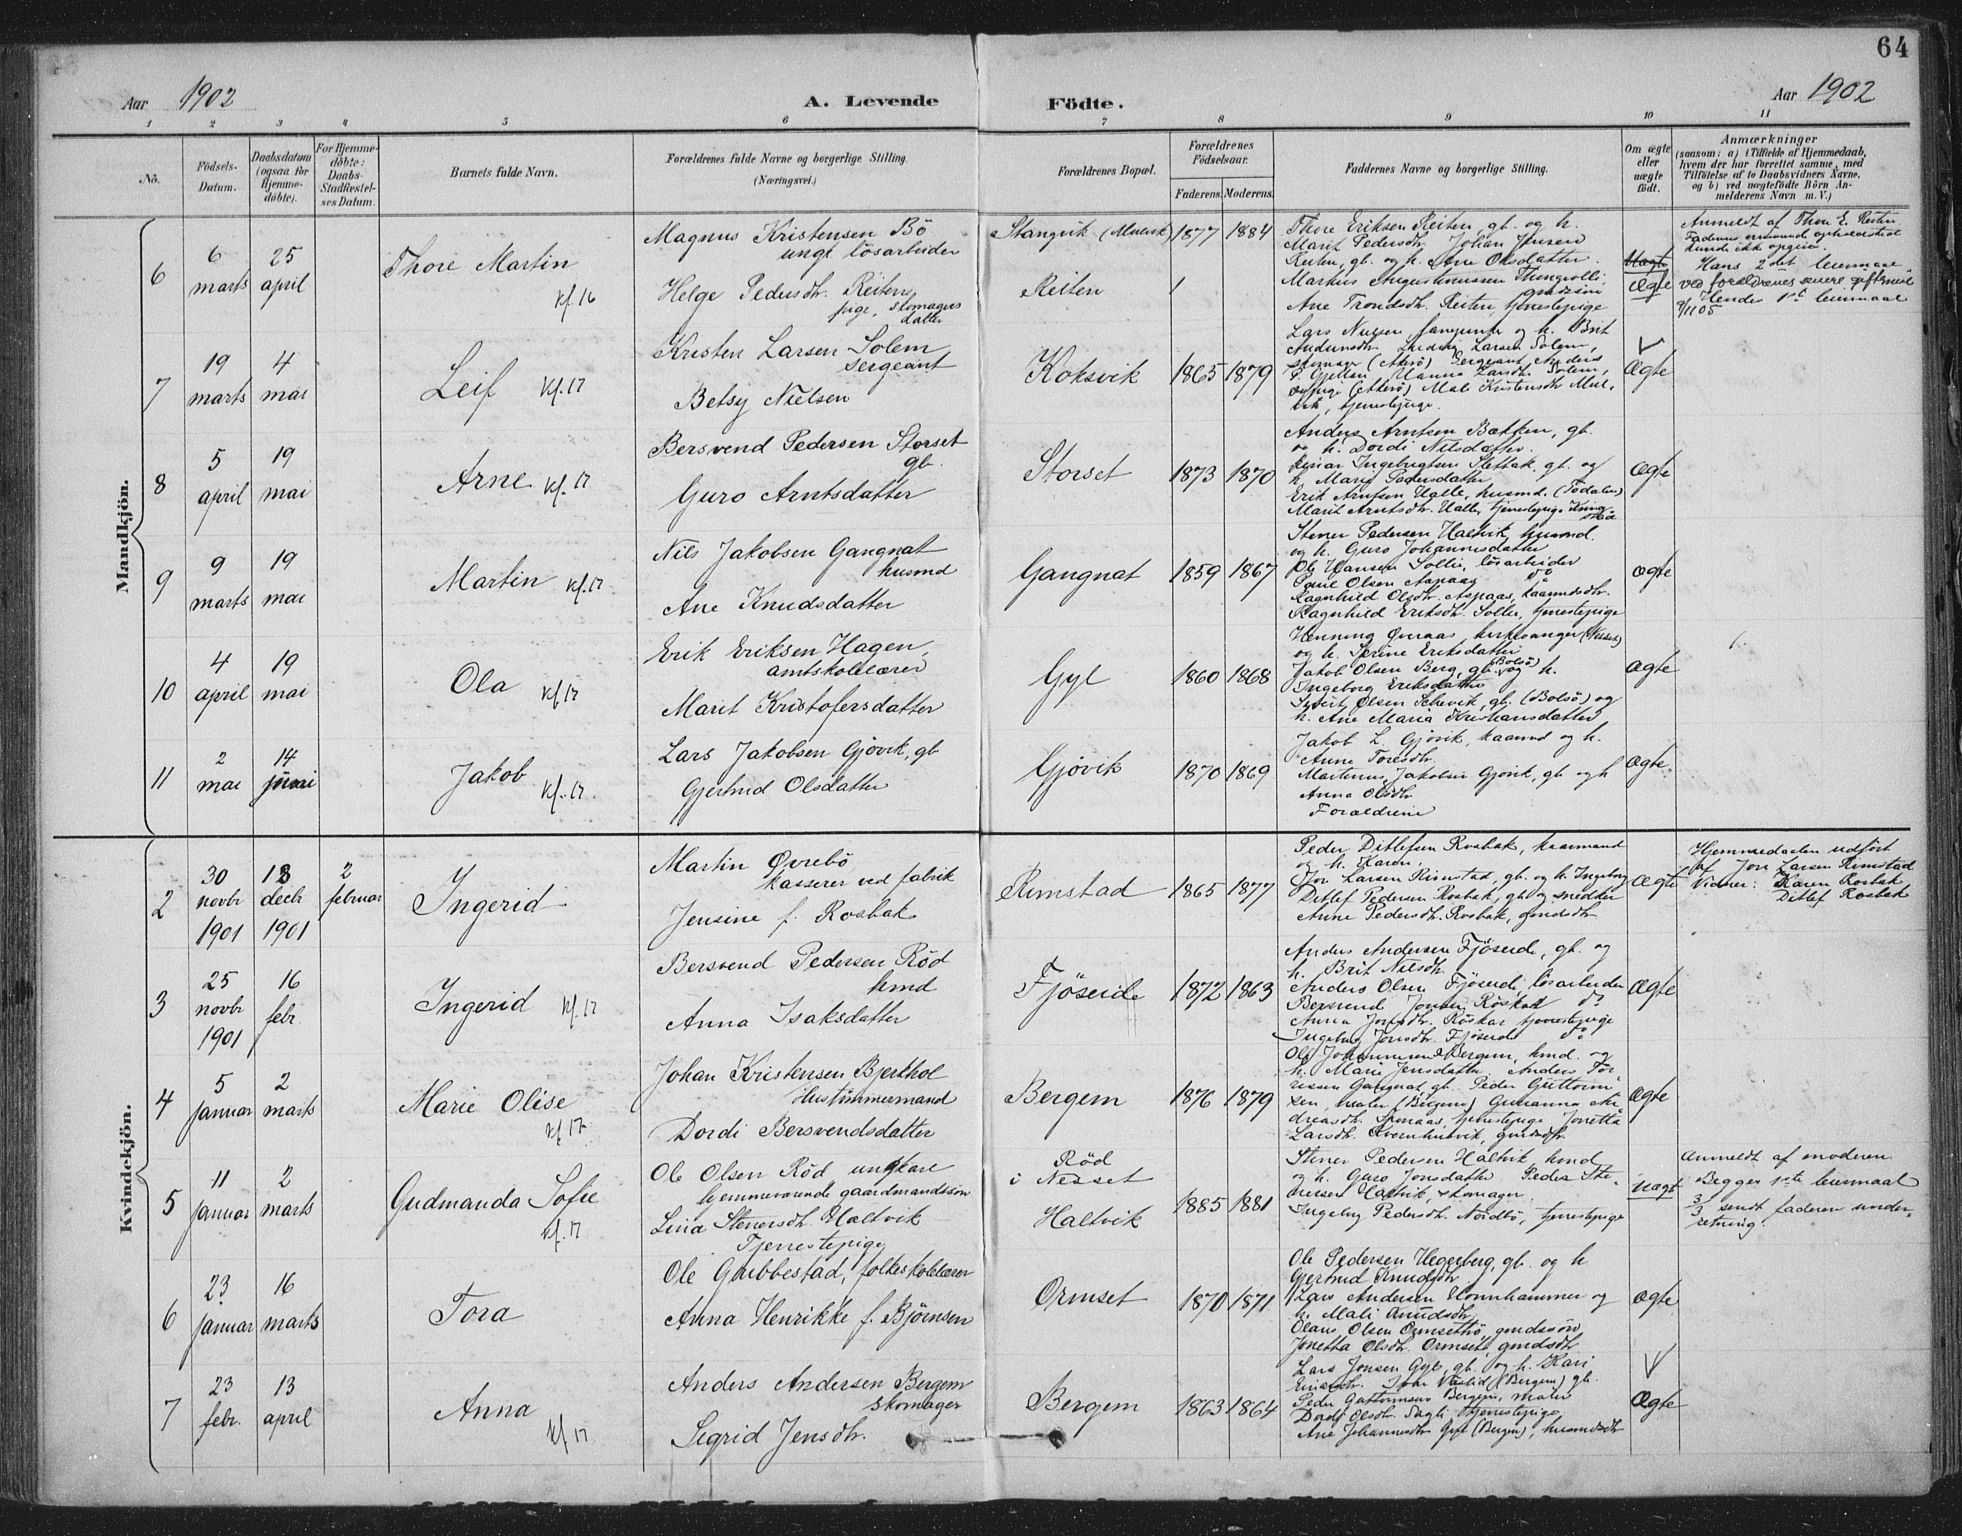 64
Aar 1902
A. Levende Födte.
Aar 1902
1 2 3 4 5 6 7 8 9 10 11
Nô.
Födsels-Datum.
Daabsdatum (ogsaa for Hjemme-döbte).
For Hjemme-döbte: Daabs-Stadfæstel-ses Datum.
Barnets fulde Navn.
Forældrenes fulde Navne og borgerlige Stilling.
(Næringsvei.)
Forældrenes Bopæl.
Forældrenes Födselsaar.
Faderens. Moderens.
Faddernes Navne og borgerlige Stilling.
Om ægte eller uægte födt.
Anmærkninger
(saasom: a) i Tilfælde af Hjemmedaab,
hvem der har forrettet samme, med
Tilföielse af to Daabsvidners Navne,
og b) ved uægtefödte Börn An-
melderens Navn m. V.)
Mandkjön.
6
6 marts
25 april
Thore Martin
kf. 16
Magnus Kristensen Bö
ungk. lösarbeider
Helge Pedersdtr. Reiten
pige, skomagers
datter
Stangvik
Reiten
1877 1884
Thore Eriksen Reiten, gb. og h.
Marit Pedersdtr. Johan Jensen
Reiten, gb. og h. Ane Olsdatter
Ane Trondsdtr. Reiten, tjenestepige
Uægte
Ægte
Anmeldt af Thore E. Reiten
kunde ikke opgives.
Hans 2det leiermaal
ved forældrenes senere giftermaal
Hendes 1ste leiermaal
9/11 05
7
19 marts
4 mai
Leif kf. 17
Kristen Larsen Solem
sergeant
Betsy Nielsen
Koksvik
1865 1879
Ægte
8
5 april
19 mai
Arne kf. 17
Bersvend Pedersen Storset
gb.
Guro Arntsdatter
Storset
1873 1870
Anders Arntsen Bækken, gb.
og h. Dordi Nilsdatter.
h. Marit Pedersdatter
Erik Arntsen Halle, husmd. (Todalen)
Marit Arntsdtr. Halle, tjenestepige
Ægte
9
9 marts
19 mai
Martin kf. 17
Nils Jakobsen Gangnat
husmd
Ane Knudsdatter
Gangnat
1859 1867
Stener Pedersen Haltvik, husmd.
og h. Guro Johannesdatter
Ole Hansen Sollie, lösarbeider
Paul Olsen Aspaas do
Ragnhild Olsdtr. Aspaas, kaarmdsdtr.
Ragnhild Eriksdtr. Sollie, tjenestepige
Ægte
10
4 april
19 mai
Ola kf. 17
Erik Eriksen Hagen,
amtskolelærer
Marit Kristofersdatter
Gyl
1860 1868
Henning Øveraas kirkesanger (Nesset)
og h. Serine Eriksdatter
Jakob Olsen Berg, gb. (Bolsö) og h.
Ingeborg Eriksdatter
Sivert Olsen Schevik, gb. (Bolsö) og
h. Ane Maria Kristiansdatter
Ægte
11
2 mai
14 juni
Jakob kf. 17.
Lars Jakobsen Gjövik, gb
Gjertrud Olsdatter
Gjövik
1870 1869
Jakob L. Gjövik, kaarmd og h.
Anne Toresdtr.
Martinus Jakobsen Gjövik, gb. og h
Anna Olsdtr
Forældrene
Ægte
Kvindekjön.
2
30 novbr 1901
18 decb 1901
2 februar
Ingerid
Martin Øvrebö
kasserer ved fabrik
Jensine f. Rosbak
Rimstad
1865 1877
Peder Ditlefsen Rosbak, kaarmand
og h. Karen.
Jon Larsen Rimstad, gb. og h. Ingeborg
Ditlef Pedersen Rosbak, gb. og snedker
Anne Pedersdtr. Rosbak, gmdsdtr
Ægte
Hjemmedaaben udfört
af Jon Larsen Rimstad
Vidner: Karen Rosbak
Ditlef Rosbak
3
25 novbr 1901
16 febr.
Ingerid kf. 17
Bersvend Pedersen Röd
hmd
Anna Isaksdatter
Fjöseide
1872 1863
Anders Andersen Fjöseide, gb. og
h. Brit Nilsdtr.
Anders Olsen Fjöseide, lösarbeider
Bersvend Jonsen Röskar do
Anna Jonsdtr. Röskar tjenestepige
Ingeborg Jonsdtr. Fjöseide do
Ægte
4
5 januar
2 marts
Marie Olise
kf 17
Johan Kristensen Bjerkhol
Hustimmermand
Dordi Bersvendsdatter
Bergem
1876 1879
Ole Johannesen Bergem, hmd. og
h. Marie Jensdatter Anders Tor-
resen Gangnat, gb. Peder Guttorm-
sen, maler (Bergem) Gurianna An-
dreasdtr. tjenestepige Jonetta
Larsdtr. Kvernhusvik, gmdsdtr.
Ægte
5
11 januar
2 marts
Gudmanda Sofie
kf. 17
Ole Olsen Röd ungkarl
hjemmeværende gaardmandssön
Lina Stenersdtr. Haltvik
Tjenestepige
Röd
i Nesset
Haltvik
1885 1881
Stener Pedersen Haltvik hmd
og h. Guro Jonsdatter Peder Ste-
nersen Haltvik, skomager.
Ingeborg Pedersdtr. Nordbö, tjenestepige
Uægte
Anmeldt af moderen
Begges 1ste leiermaal
3/3 sendt faderen under-
retning.
6
23 januar
16 marts
Tora
Ole Gribbestad, folkeskolelærer
Anna Henrikke f. Björnsen
Ormset
1870 1871
Ole Pedersen Hegerberg, gb. og h
Gjertrud Knudsdtr
Lars Andersen Honnhammer og
h. Mali Knudsdtr
Olaus Olsen Ormsethö, gmdssön
Jonetta Olsdtr. Ormset, gmdsdtr
Ægte
7
23 febr.
13 april
Anna
kf 17
Anders Andersen Bergem
skomager
Sigrid Jensdtr.
Bergem
1863 1864
Lars Jonsen Gyl, gb. og h. Kari
Peder Guttormsen Bergem, maler
Dordi Olsdtr. Sagli tjenestepige
Ane Johannesdtr Gyl (Bergem), husmdsdtr
Ægte